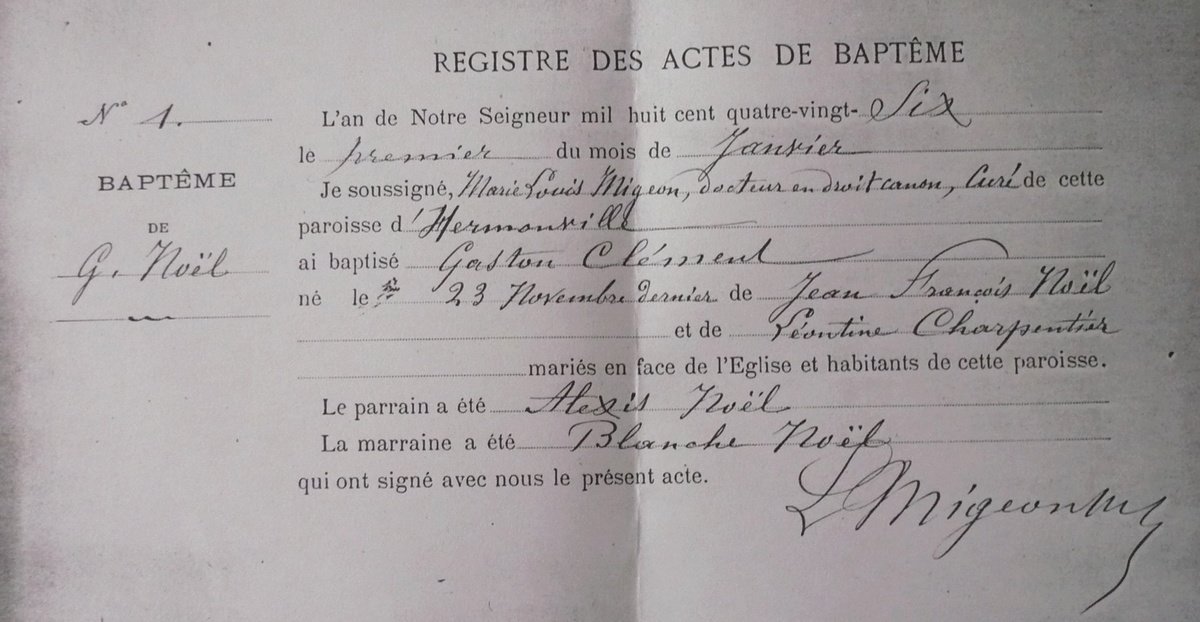 REGISTRE DES ACTES DE BAPTÊME
N° 1.
BAPTÊME
DE
G. Noël
L'an de Notre Seigneur mil huit cent quatre-vingt- Six
le premier du mois de Janvier
Je soussigné, Marie Louis Migeon, docteur en droit canon, Curé de cette
paroisse d'Hermonville
ai baptisé Gaston Clément
né le 23 Novembre dernier de Jean François Noël
et de Léontine Charpentier
mariés en face de l'Eglise et habitants de cette paroisse.
Le parrain a été Alexis Noël
La marraine a été Blanche Noël
qui ont signé avec nous le présent acte.
L Migeon